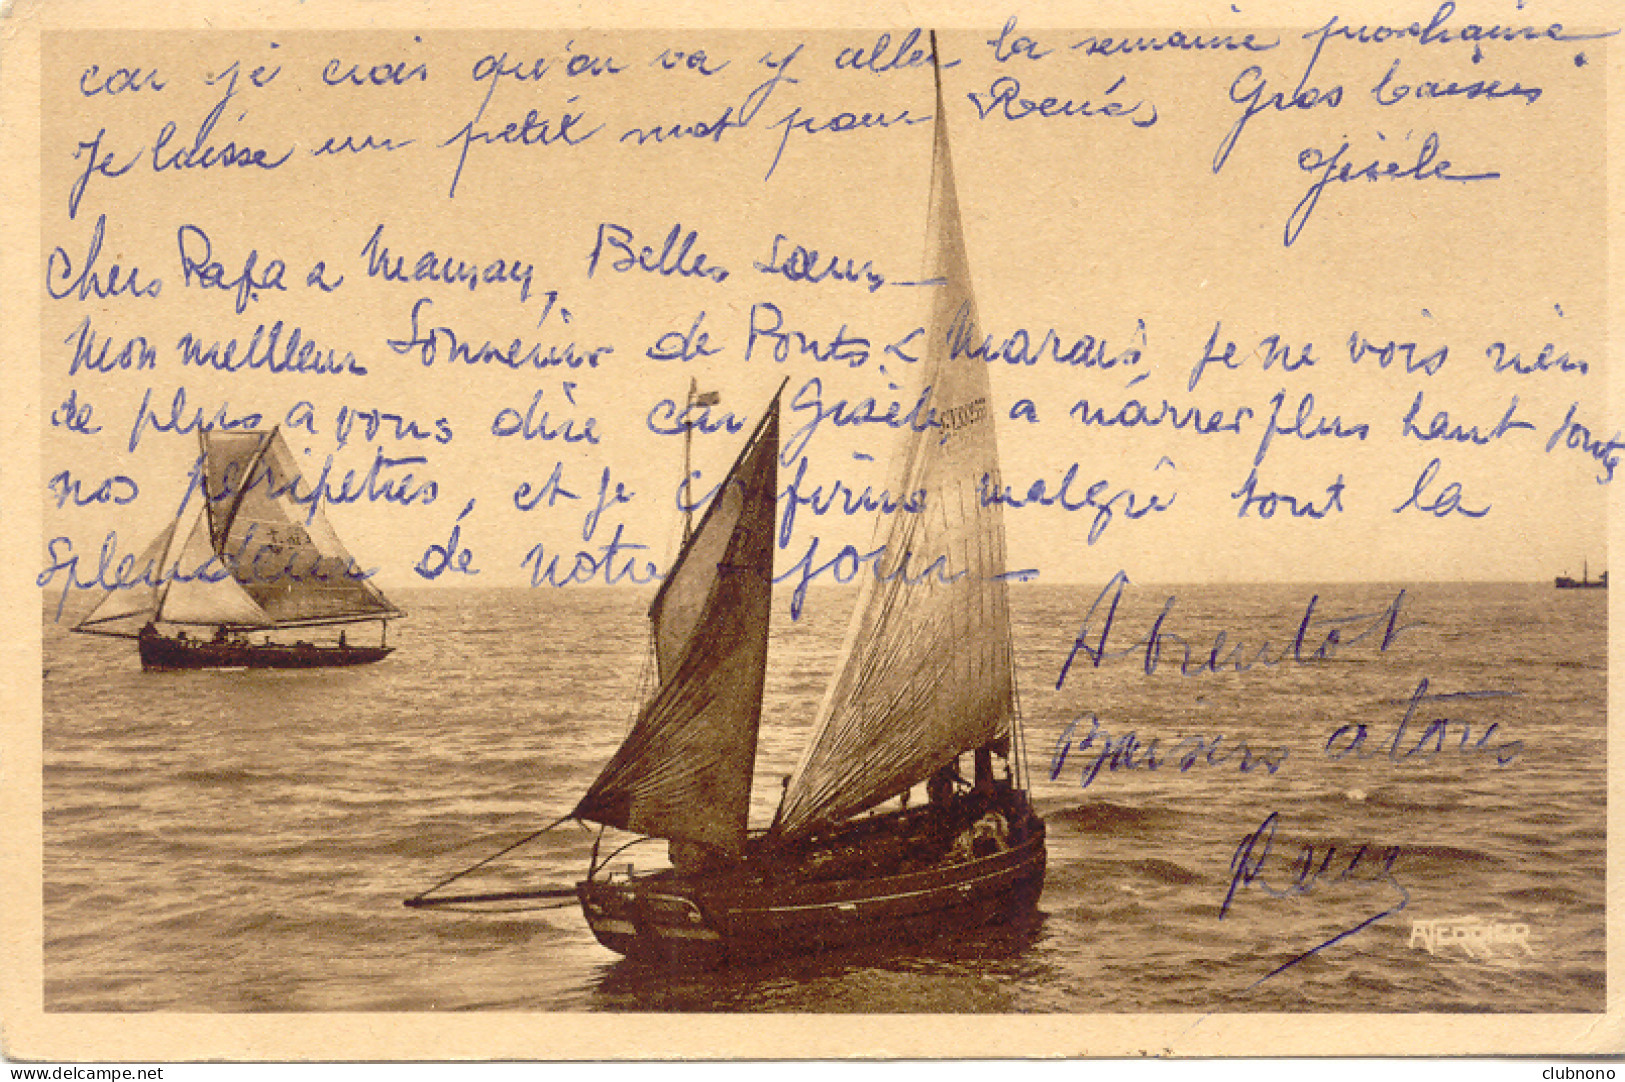 car je crois qu'on va y aller la semaine prochaine.
Je laisse un petit mot pour René, Gros baisers
Gisèle
Chers Papa & Maman, Belles Sœurs -
Mon meilleur Souvenir de Ponts & Marais, je ne vois rien
de plus a vous dire car Gisèle a narrer plus haut toutes
nos péripéties, et je confirme malgré tout la
splendeur de notre séjour -
A bientot
Baisers a tous
René
A.TERRIER
delcampe.net
clubnono